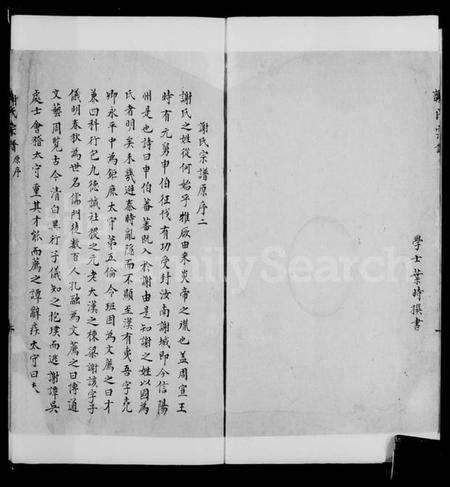 謝氏宗譜
學士葉時撰書
謝氏宗譜原序二
謝氏之姓從何始乎雅厥由來炎帝之裔也蓋周宣王
時有元舅申伯征伐有功受封汝南謝城即今信陽
州是也詩曰申伯蕃蕃既入於謝由是知謝之姓以國為
氏者明矣未幾避秦時亂隱而不顯至漢有夷吾字堯
卿永平中為鉅鹿太守第五倫令班固為文薦之曰才
兼四科行包九德誠社稷之元老大漢之棟梁謝該字子
儀明春秋為世名儒門徒數百人孔融為文薦之曰博通
文藝周覽古今清白異行子儀知之抱璞而逃謝譚吳
處士會稽太守重其才能而薦之譚辭疾太守曰
謝氏宗譜 原序
FamilySearch